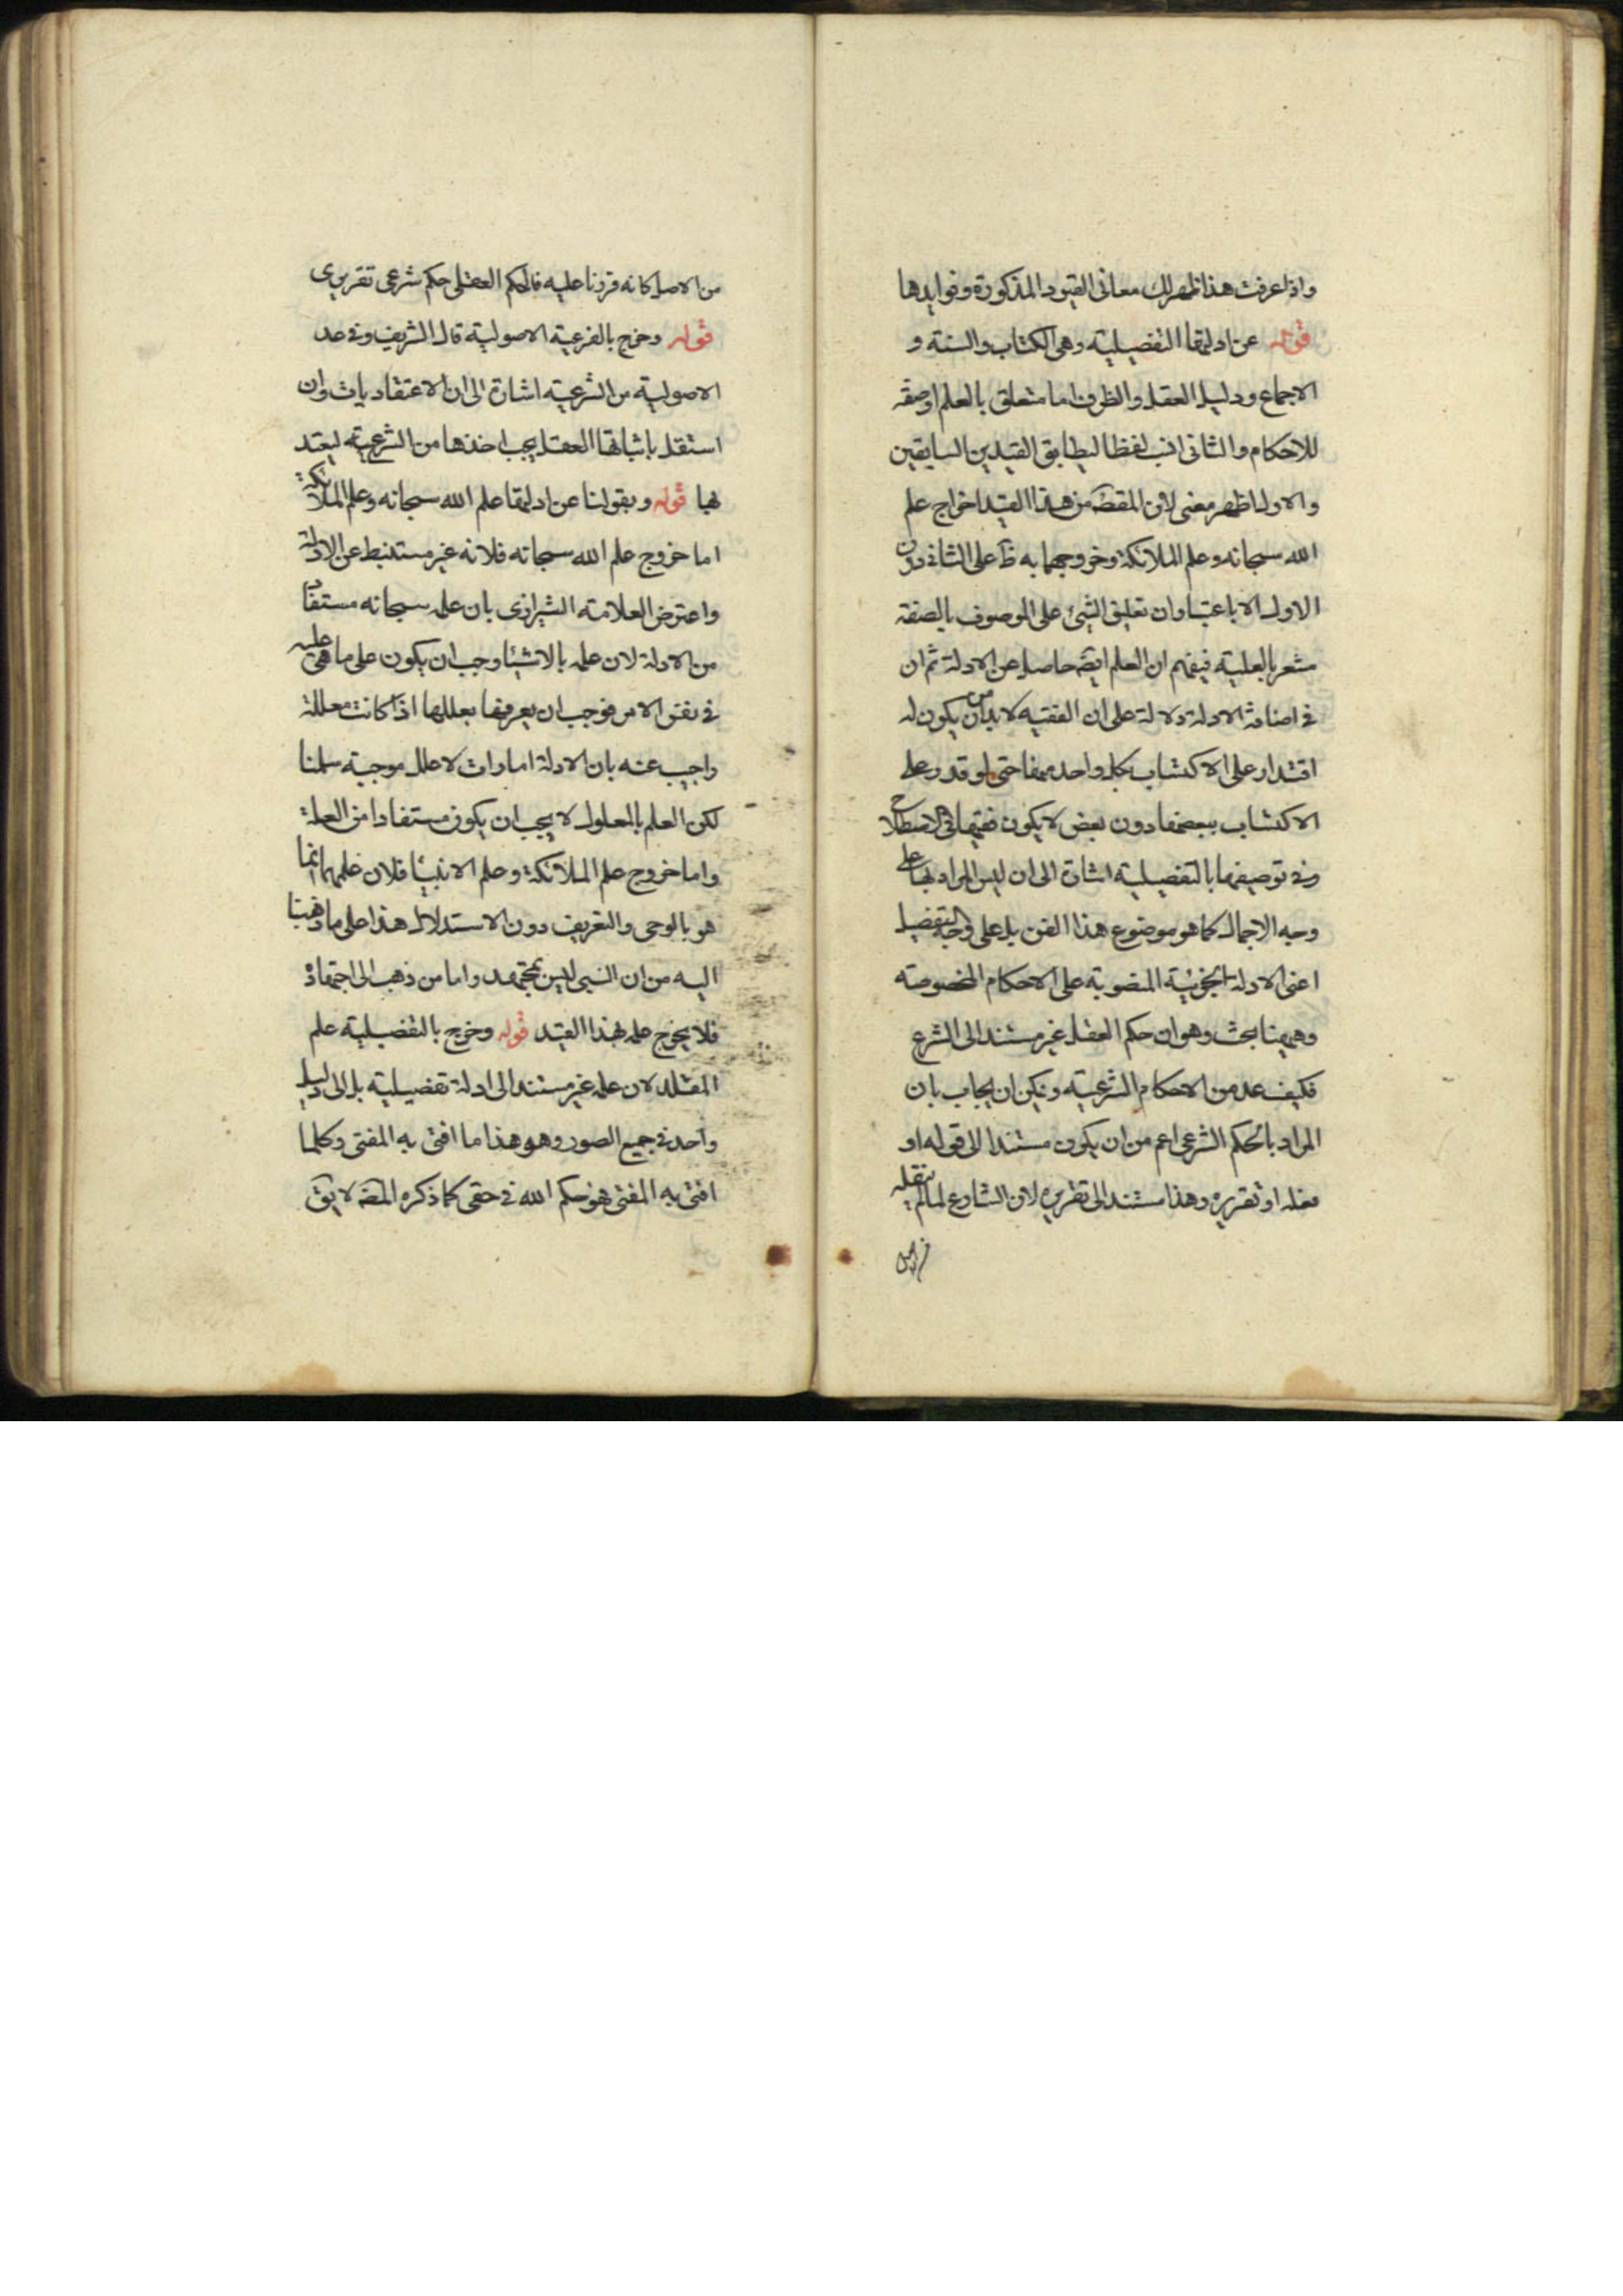 واذا عرفت هذا ظهر لك معانى القيود المذكورة وفوايدها
قوله عن ادلتها التفصيلية وهى الكتاب والسنة و
الاجماع ودليل العقل والظرف اما متعلق بالعلم او صفة
للاحكام والثانى انسب لفظا ليطابق القيدين السابقين
والاول اظهر معنى لان المقصَ من هذا القيد اخراج علم
الله سبحانه وعلم الملائكة وخروجهما به ظَ على الثانى دون
الاول الا باعتبار ان تعليق الشيئ على الموصوف بالصفة
مشعر بالعلية فيفهم ان العلم ايضَ حاصل عن الادلة ثم ان
فى اضافة الادلة دلالة على ان الفقيه لا بد من ان يكون له
اقتدار على الاكتساب بكل واحد منها حتى لو قدر على
الاكتساب ببعضها دون بعض لا يكون فقيها فى الاصطلاح
وفى توصيفها بالتفصيلية اشارة الى ان ليس المراد بها على
وجه الاجمال كما هو موضوع هذا الفن بل على وجه التفصيل
اعنى الادلة الجزئية المنصوبة على الاحكام المخصوصة
وههنا بحث وهو ان حكم العقل غير مستند الى الشرع
فكيف عد من الاحكام الشرعية ويمكن ان يجاب بان
المراد بالحكم الشرعى اعم من ان يكون مستندا الى قوله او
فعله او تقريره وهذا مستند الى تقريره لان الشارع لما لم ينقله
من الاصل
من الاصل كانه قررنا عليه فالحكم العقلى حكم شرعى تقريرى
قوله وخرج بالفرعية الاصولية قال الشريف وفى عد
الاصولية من الشرعية اشارة الى ان الاعتقاديات وان
استقل باثباتها العقل يجب اخذها من الشرعية ليعتد
بها قوله وبقولنا عن ادلتها علم الله سبحانه وعلم الملائكة
اما خروج علم الله سبحانه فلانه غير مستنبط عن الادلة
واعترض العلامة الشيرازى بان علمه سبحانه مستفاد
من الادلة لان علمه بالاشيئا وجب ان يكون على ما هى عليه
فى نفس الامر فوجب ان يعرفها بعللها اذا كانت معللة
واجيب عنه بان الادلة امارات لا علل موجبة سلمنا
لكن العلم بالمعلول لا يجب ان يكون مستفادا من العلة
واما خروج علم الملائكة وعلم الانبيئا فلان علمهما انما
هو بالوحى والتعريف دون الاستدلال هذا على ما ذهبنا
اليه من ان النبى ليس بمجتهد واما من ذهب الى اجتهاده
فلا يخرج علمه بهذا القيد قوله وخرج بالتفصيلية علم
المقلد لان علمه غير مستند الى ادلة تفصيلية بل الى دليل
واحد فى جميع الصور وهو هذا ما افتى به المفتى وكلما
افتى به المفتى فهو حكم الله فى حقى كما ذكره المصَ لا يقَ